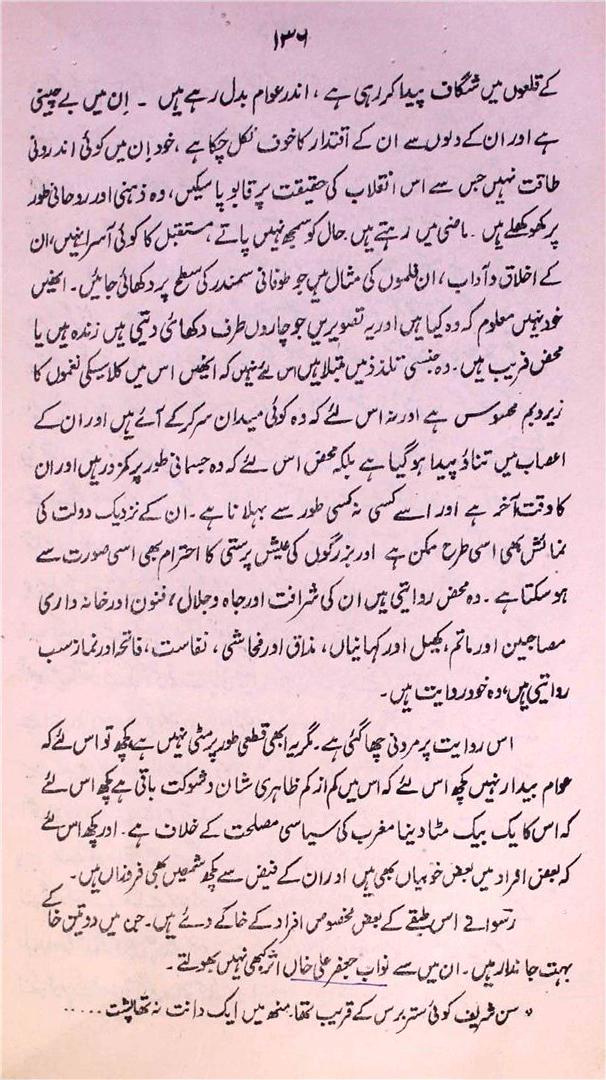 ۱۳۶
کے قلعوں میں شگاف پیدا کر رہی ہے ، اندر عوام بدل رہے ہیں ۔ اِن میں بے چینی
ہے اور ان کے دلوں سے ان کے اقتدار کا خوف نکل چکا ہے ، خود اِن میں کوئی اندرونی
طاقت نہیں جس سے اس انقلاب کی حقیقت پر قابو پا سکیں ، وہ ذہنی اور روحانی طور
پر کھوکھلے ہیں ۔ ماضی میں رہتے ہیں حال کو سمجھ نہیں پاتے مستقبل کا کوئی آسرا نہیں ، ان
کے اخلاق و آداب ، ان فلموں کی مثال ہیں جو طوفانی سمندر کی سطح پر دکھائی جائیں ۔ انھیں
خود نہیں معلوم کہ وہ کیا ہیں اور یہ تصویریں جو چاروں طرف دکھائی دیتی ہیں زندہ ہیں یا
محض فریب ہیں ۔ وہ جنسی تلذذ میں مبتلا ہیں اس لئے نہیں کہ انھیں اس میں کلاسیکی نغموں کا
زیر و بم محسوس ہے اور نہ اس لئے کہ وہ کوئی میدان سر کر کے آئے ہیں اور ان کے
اعصاب میں تناؤ پیدا ہو گیا ہے بلکہ محض اس لئے کہ وہ جسمانی طور پر کمزور ہیں اور ان
کا وقت آخر ہے اور اسے کسی نہ کسی طور سے بہلانا ہے ۔ ان کے نزدیک دولت کی
نمائش بھی اسی طرح ممکن ہے اور بزرگوں کی عیش پرستی کا احترام بھی اسی صورت سے
ہو سکتا ہے ۔ وہ محض روایتی ہیں ان کی شرافت اور جاہ و جلال ، فنون اور خانہ داری
مصاحبین اور ماتم ، کھیل اور کہانیاں ، مذاق اور فحاشی ، نفاست ، فاتحہ اور نماز سب
روایتی ہیں ، وہ خود روایت ہیں ۔
اس روایت پر مردنی چھا گئی ہے ۔ مگر یہ ابھی قطعی طور پر مٹی نہیں ہے کچھ تو اس لئے کہ
عوام بیدار نہیں کچھ اس لئے کہ اس میں کم از کم ظاہری شان و شوکت باقی ہے کچھ اس لئے
کہ اس کا یک بیک مٹا دینا مغرب کی سیاسی مصلحت کے خلاف ہے ۔ اور کچھ اس لئے
کہ بعض افراد میں بعض خوبیاں بھی ہیں اور ان کے فیض سے کچھ شمعیں بھی فروزاں ہیں ۔
رسوا نے اس طبقے کے بعض مخصوص افراد کے خاکے دئے ہیں ۔ جن میں دو تین خاکے
بہت جاندار ہیں ۔ ان میں سے نواب جعفر علی خاں اثر کبھی نہیں بھولتے ۔
" سن شریف کوئی ستر برس کے قریب تھا ۔ منھ میں ایک دانت نہ تھا پشت .....